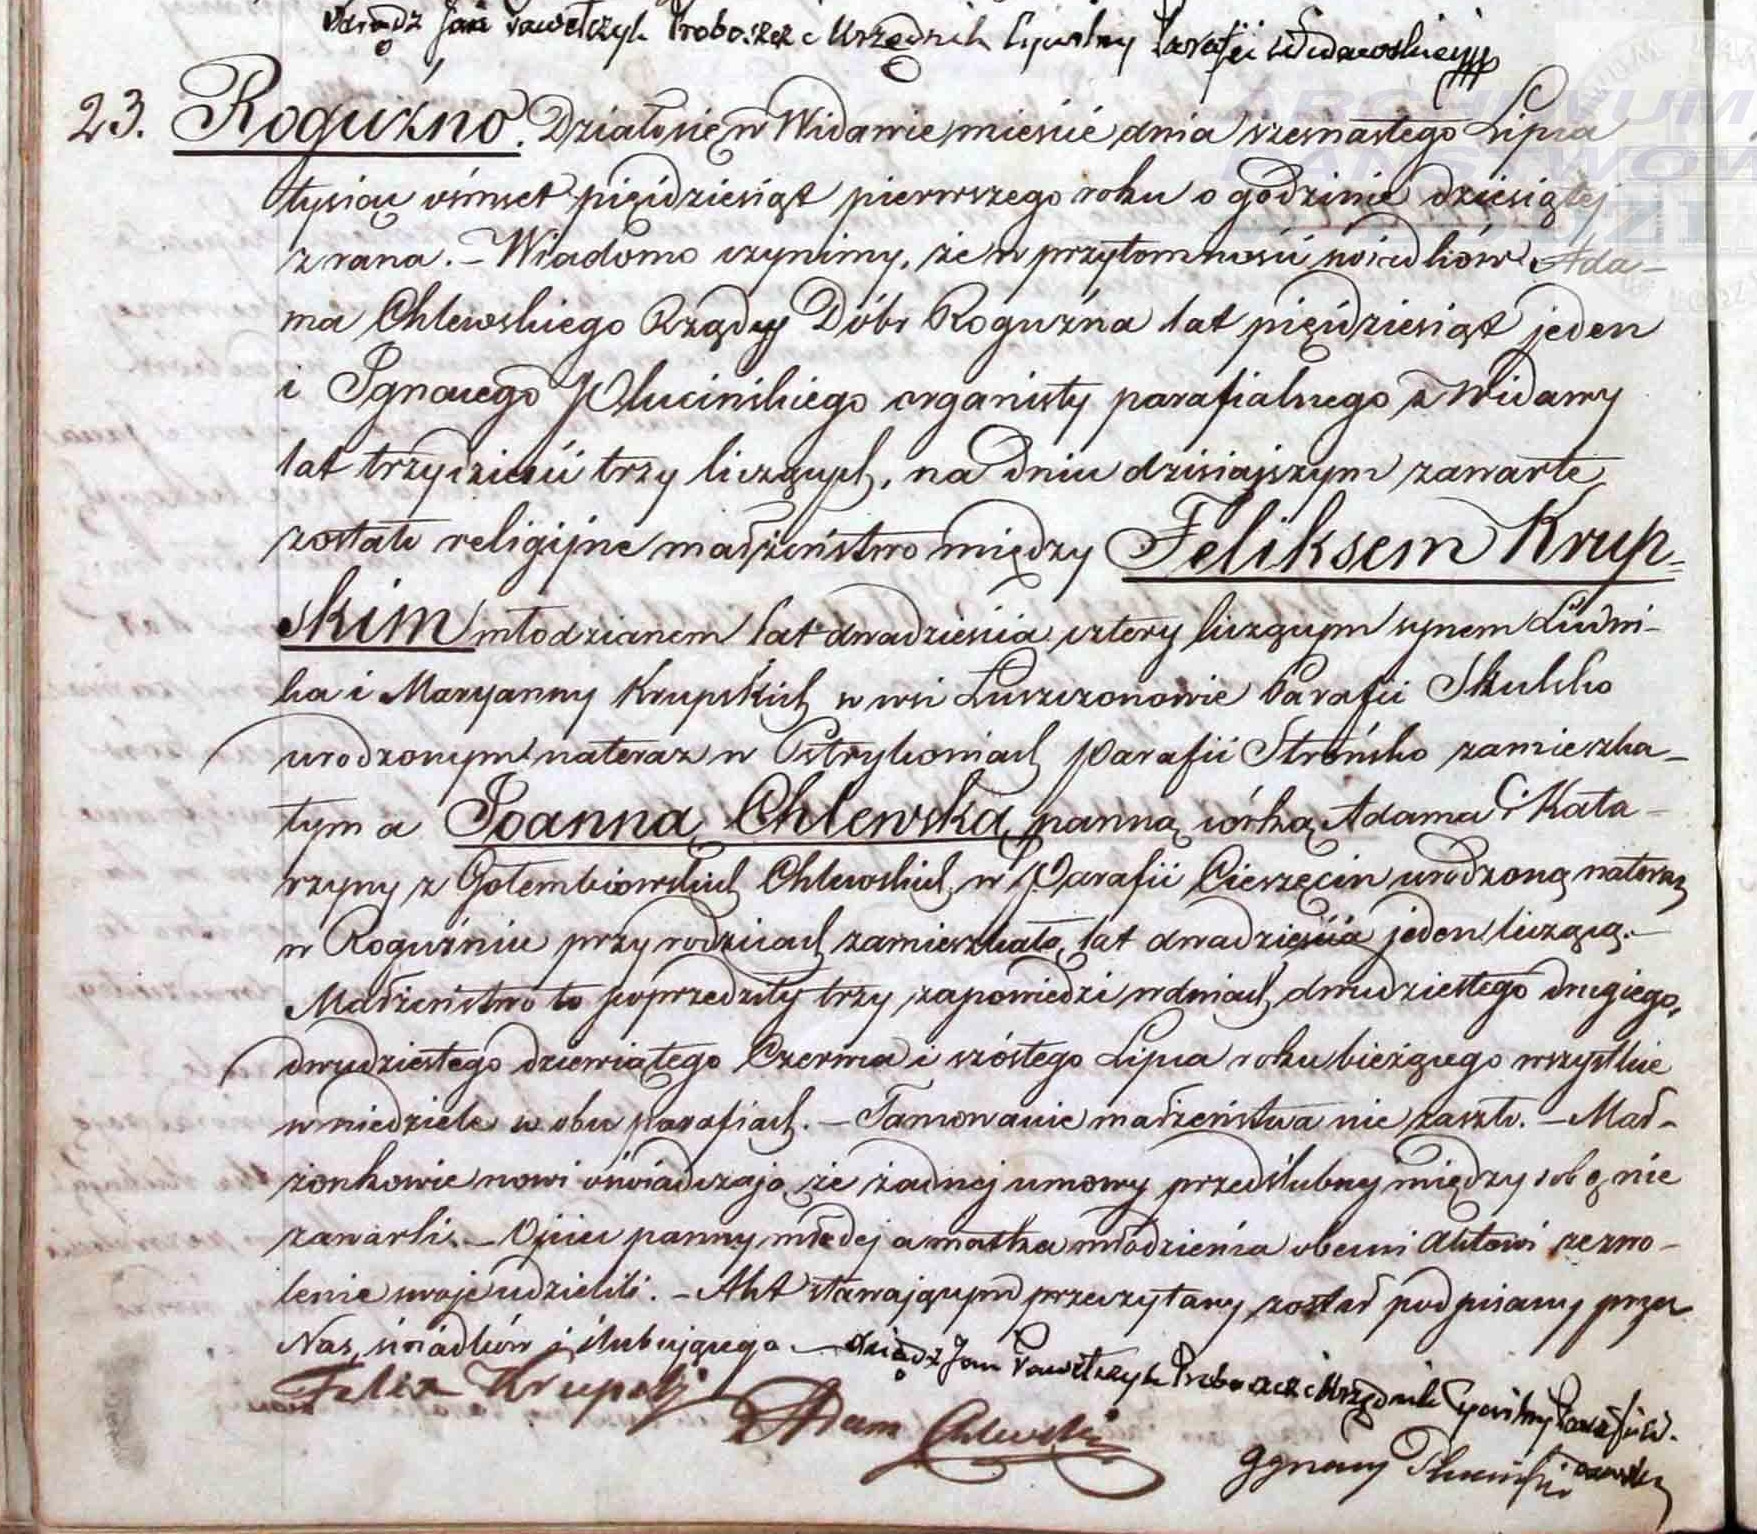 Xiądz Jan Pawełczyk Proboszcz i Urzędnik Cywilny Parafii Widawskiey
23. Roguźno. Działo się w Widawie mieście dnia szesnastego Lipca
tysiąc ośmset pięćdziesiąt pierwszego roku o godzinie dziesiątej
z rana. – Wiadomo czynimy, że w przytomności świadków Ada-
ma Chlewskiego Rządcy Dóbr Roguźna lat pięćdziesiąt jeden
i Ignacego Plucińskiego organisty parafialnego z Widawy
lat trzydzieści trzy liczących, na dniu dzisiajszym zawarte
zostało religijne małżeństwo między Feliksem Krup-
skim młodzianem lat dwadzieścia cztery liczącym synem Ludwi-
ka i Maryanny Krupskich w wsi Luszczonowie Parafii Skulsko
urodzonym nateraz w Pstrykoniach Parafii Strońsko zamieszka-
łym a Joanną Chlewską panną córką Adama i Kata-
rzyny z Gołembiowskich Chlewskich w Parafii Cieszęcin urodzoną nateraz
w Roguźniu przy rodzicach zamieszkałą, lat dwadzieścia jeden liczącą. –
Małżeństwo to poprzedziły trzy zapowiedzi w dniach dwudziestego drugiego,
dwudziestego dziewiątego Czerwca i szóstego Lipca roku bieżącego wszystkie
w niedziele w obu parafiach. – Tamowanie małżeństwa nie zaszło. – Mał-
żonkowie nowi oświadczają że żadnej umowy przedślubny między sobą nie
zawarli. – Ojciec panny młodej a matka młodzieńca obecni Aktowi zezwo-
lenie swoje udzielili. – Akt stawającym przeczytany został podpisany przez
Nas, świadków i ślubującego. – Xiądz Jan Pawełczyk Proboszcz i Urzędnik Cywilny Parafii Wi-
dawskiey
Felix Krupski
Adam Chlewski
Ignacy Pluciński
ARCHIWUM
PAŃSTWOW